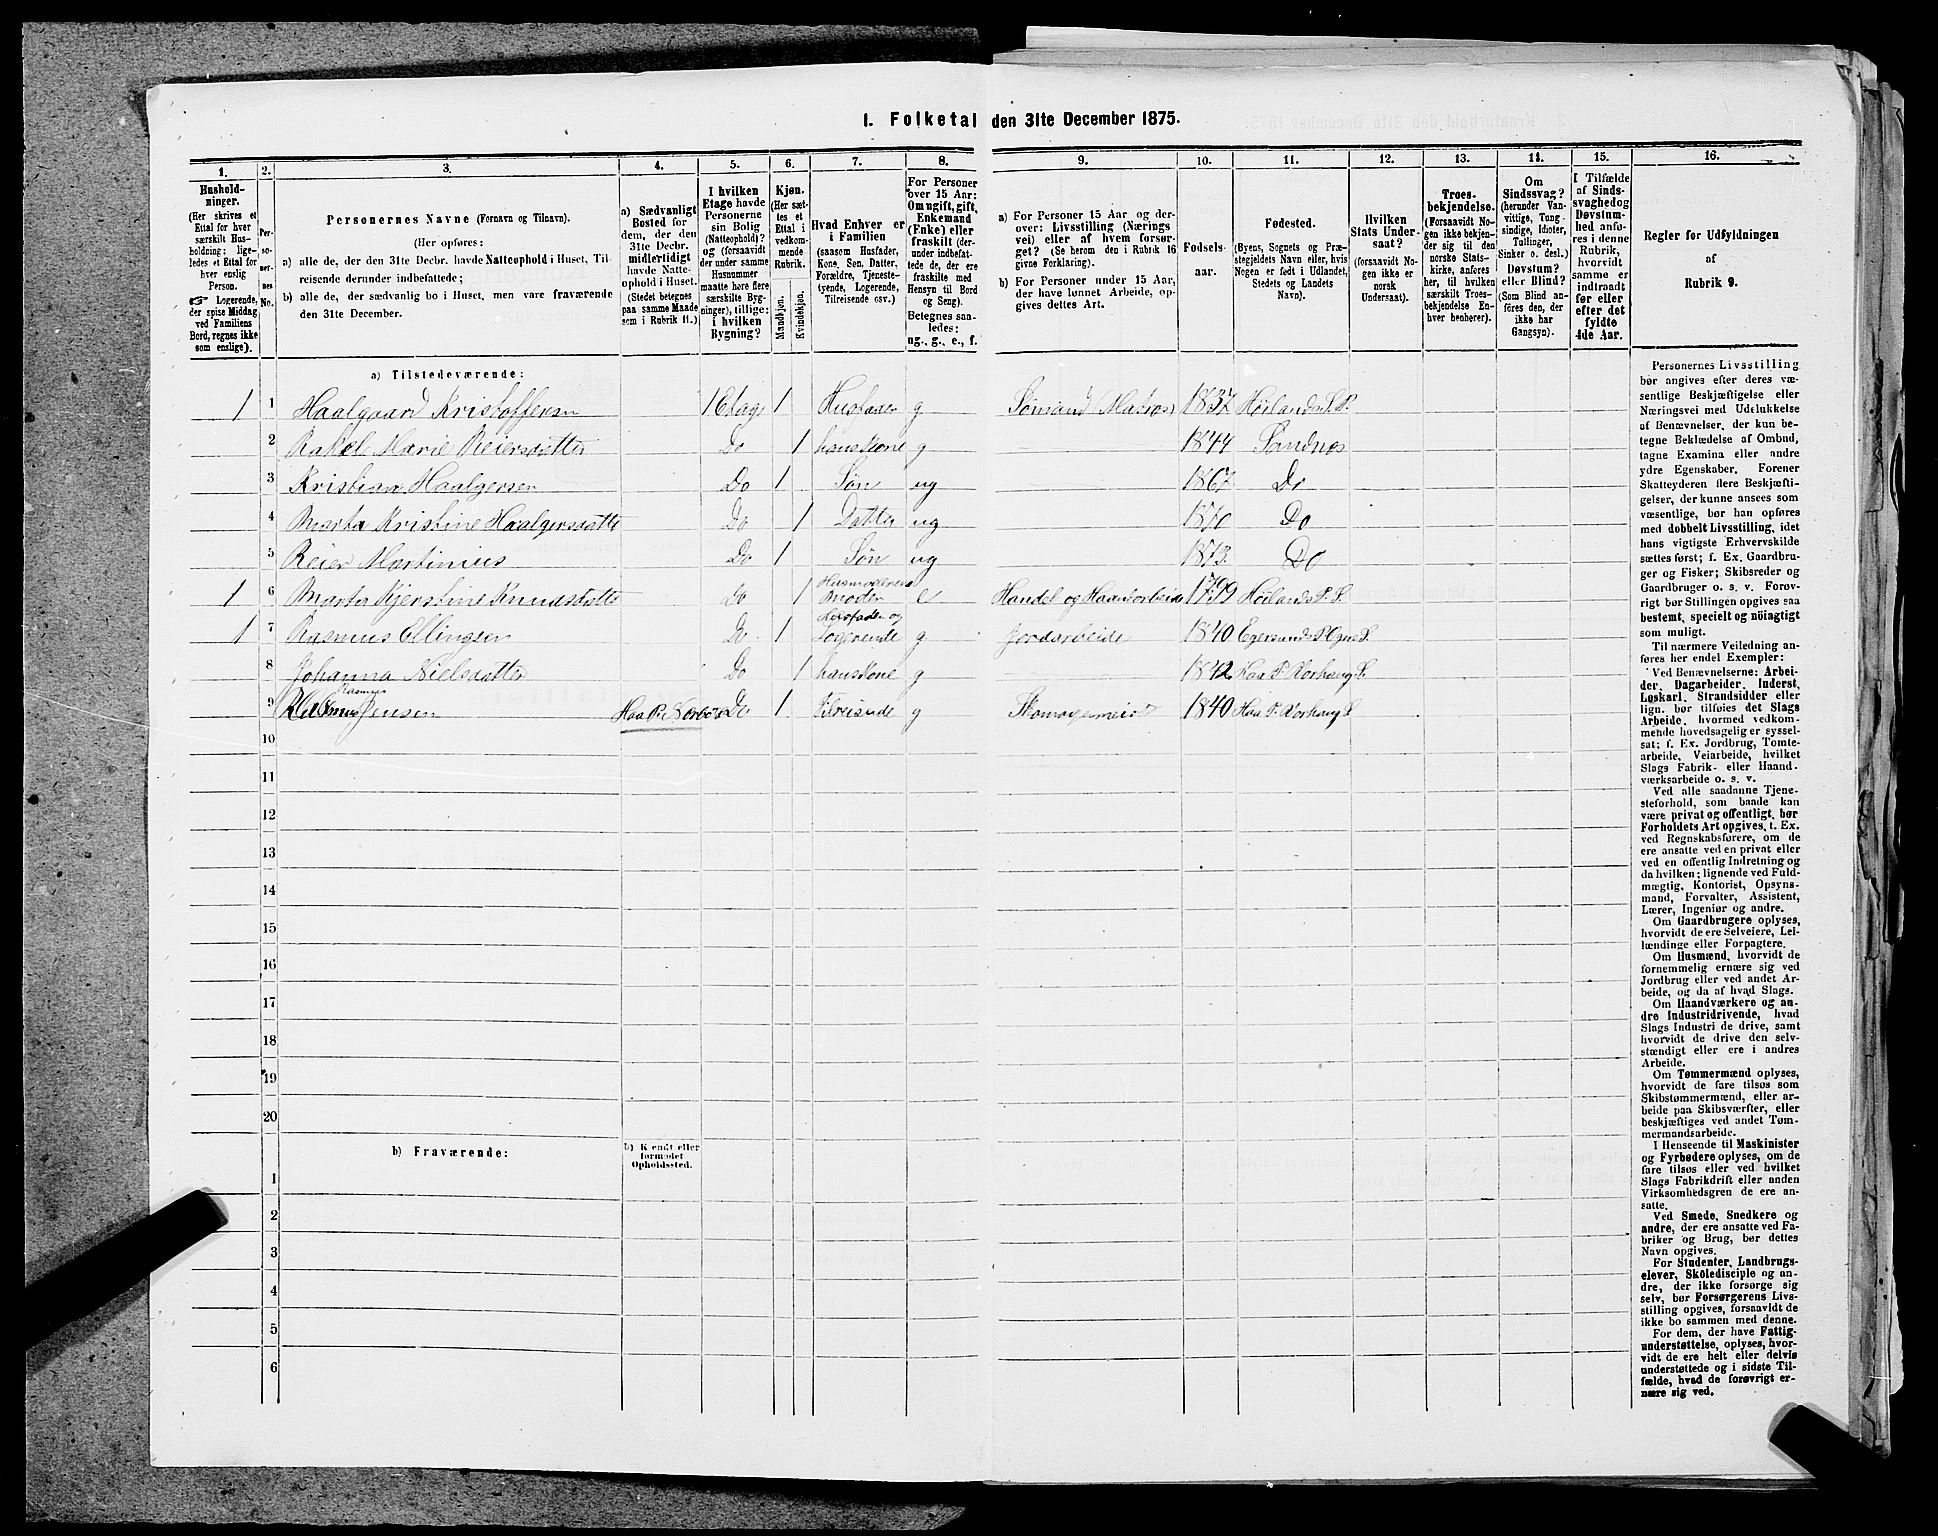 1. Folketal den 31te December 1875.
1. 2. 3. 4. 5. 6. 7. 8. 9. 10. 11. 12. 13. 14. 15. 16.
Hushold-
ninger.
(Her skrives et
Ettal for hver
særskilt Hus-
holdning; lige-
ledes et Ettal for
hver enslig
Person.
☞ Logerende,
der spise Middag
ved Familiens
Bord, regnes ikke
som enslige).
Per-
so-
ner-
nes
No.
Personernes Navne (Fornavn og Tilnavn).
(Her opføres:
a) alle de, der den 31te Decbr. havde Natteophold i Huset, Til-
reisende derunder indbefattede;
b) alle de, der sædvanlig bo i Huset, men vare fraværende
den 31te December.
a) Sædvanligt
Bosted for
dem, der den
31te Decbr.
midlertidigt
havde Natte-
ophold i Huset.
(Stedet betegnes
paa samme Maade
som i Rubrik 11.)
I hvilken
Etage havde
Personerne
sin Bolig
(Natteophold)?
og (forsaavidt
der under samme
Husnummer
maatte høre flere
særskilte Byg-
ninger), tillige:
i hvilken
Bygning?
Kjøn.
(Her sæt-
tes et
Ettal i
vedkom-
mende
Rubrik.
Mandkjøn.
Kvindekjøn.
Hvad Enhver er
i Familien
(saasom Husfader,
Kone, Søn, Datter,
Forældre, Tjeneste-
tyende, Logerende,
Tilreisende osv.)
For Personer
over 15 Aar:
Om ugift, gift,
Enkemand
(Enke) eller
fraskilt (der-
under indbefat-
tede de, der ere
fraskilte med
Hensyn til Bord
og Seng).
Betegnes saa-
ledes:
ug., g., e., f.
a) For Personer 15 Aar og der-
over: Livsstilling (Nærings
vei) eller af hvem forsør-
get? (Se herom den i Rubrik 16
givne Forklaring).
b) For Personer under 15 Aar,
der have lønnet Arbeide, op-
gives dettes Art.
Fødsels-
aar.
Fødested.
(Byens, Sognets og Præ-
stegjeldets Navn eller, hvis
Nogen er født i Udlandet,
Stedets og Landets
Navn).
Hvilken
Stats Under-
saat?
(forsaavidt No-
gen ikke er
norsk
Undersaat).
Troes-
bekjendelse.
(Forsaavidt No-
gen ikke bekjen-
der sig til den
norske Stats-
kirke, anføres
her, til hvilken
særskilt Troes-
bekjendelse En-
hver henhører).
Om
Sindssvag?
(herunder Van-
vittige, Tung-
sindige, Idioter,
Tullinger,
Sinker o. desl.)
Døvstum?
eller Blind?
(Som Blind an-
føres den, der
ikke har
Gangsyn).
I Tilfælde
af Sinds-
svaghed og
Døvstum-
hed anfø-
res i denne
Rubrik,
hvorvidt
samme er
indtraadt
før eller
efter det
fyldte
4de Aar.
Regler for Udfyldningen
af
Rubrik 9.
a) Tilstedeværende:
1 1 Haalgaard Kristoffersen 1 Etage 1 Husfader g Sømand (Matros) 1837 Høilands S. P.
2 Rakel Marie Reiersdatter Do 1 huuskone g 1844 Sandnes
3 Kristian Haalgersen Do 1 Søn ug 1867 Do
4 Marta Kristine Haalgersdatte Do 1 Datter ug 1870 Do
5 Reier Martinius Do 1 Søn ug 1873. Do
1 6 Marta Kjerstine Knudsdatte Do 1 Husmoderens Moder e Handel og Haandarbeide 1799 Høilands P. S.
1 7 Rasmus Ellingsen Do 1 Husfader og Logerende g Jordarbeide 1840 Egersunds P. Ogne S.
8 Johanna Nielsdatter Do 1 huuskone g 1842 Haa P. Varhaug S.
9 Rasmus Jensen Haa P. Nærbø S. Do 1 Tilreisende g Skomagermeist 1840 Haa P. Varhaug S.
Rasmus
10
11
12
13
14
15
16
17
18
19
20
b) Fraværende:
b) Kjendt eller
formodet
Opholdssted.
1
2
3
4
5
6
Personernes Livsstilling
bør angives efter deres væ-
sentlige Beskjæftigelse eller
Næringsvei med Udelukkelse
af Benævnelser, der kun be-
tegne Beklædelse af Ombud,
tagne Examina eller andre
ydre Egenskaber. Forener
Skatteyderen flere Beskjæfti-
gelser, der kunne ansees som
væsentlige, bør han opføres
med dobbelt Livsstilling, idet
hans vigtigste Erhvervskilde
sættes først; f. Ex. Gaardbru-
ger og Fisker; Skibsreder og
Gaardbruger o. s. v. Forøv-
rigt bør Stillingen opgives saa
bestemt, specielt og nöiagtigt
som muligt.
Til nærmere Veiledning an-
føres her endel Exempler:
Ved Benævnelserne: Arbei-
der, Dagarbeider, Inderst,
Løskarl, Strandsidder eller
lign. bør tilføies det Slags
Arbeide, hvormed vedkom-
mende hovedsagelig er syssel-
sat; f. Ex. Jordbrug, Tomte-
arbeide, Veiarbeide, hvilket
Slags Fabrik- eller Haand-
værksarbeide o. s. v.
Ved alle saadanne Tjene-
steforhold, som baade kan
være privat og offentligt, bør
Forholdets Art opgives, t. Ex.
ved Regnskabsførere, om de
ere ansatte ved en privat eller
ved en offentlig Indretning og
da hvilken; lignende ved Fuld-
mægtig, Kontorist, Opsyns-
mand, Forvalter, Assistent,
Lærer, Ingeniør og andre.
Om Gaardbrugere oplyses,
hvorvidt de ere Selveiere, Lei-
lændinge eller Forpagtere.
Om Husmænd, hvorvidt de
fornemmelig ernære sig ved
Jordbrug eller ved andet Ar-
beide, og da af hvad Slags.
Om Haandværkere og an-
dre Industridrivende, hvad
Slags Industri de drive, samt
hvorvidt de drive den selv-
stændigt eller ere i andres
Arbeide.
Om Tømmermænd oplyses,
hvorvidt de fare tilsøs som
Skibstømmermænd, eller ar-
beide paa Skibsværfter, eller
beskjæftiges ved andet Tøm-
mermandsarbeide.
I Henseende til Maskinister
og Fyrbødere oplyses, om de
fare tilsøs eller ved hvilket
Slags Fabrikdrift eller anden
Virksomhedsgren de ere an-
satte.
Ved Smede, Snedkere og
andre, der ere ansatte ved Fa-
briker og Brug, bør dettes
Navn opgives.
For Studenter, Landbrugs-
elever, Skoledisciple og an-
dre, der ikke forsørge sig
selv, bør Forsørgerens Livs-
stilling opgives, forsaavidt de
ikke bo sammen med denne.
For dem, der have Fattig-
understøttelse, oplyses, hvor-
vidt de ere helt eller delvis
understøttede og i sidste Til-
fælde, hvad de forøvrigt er-
nære sig ved.